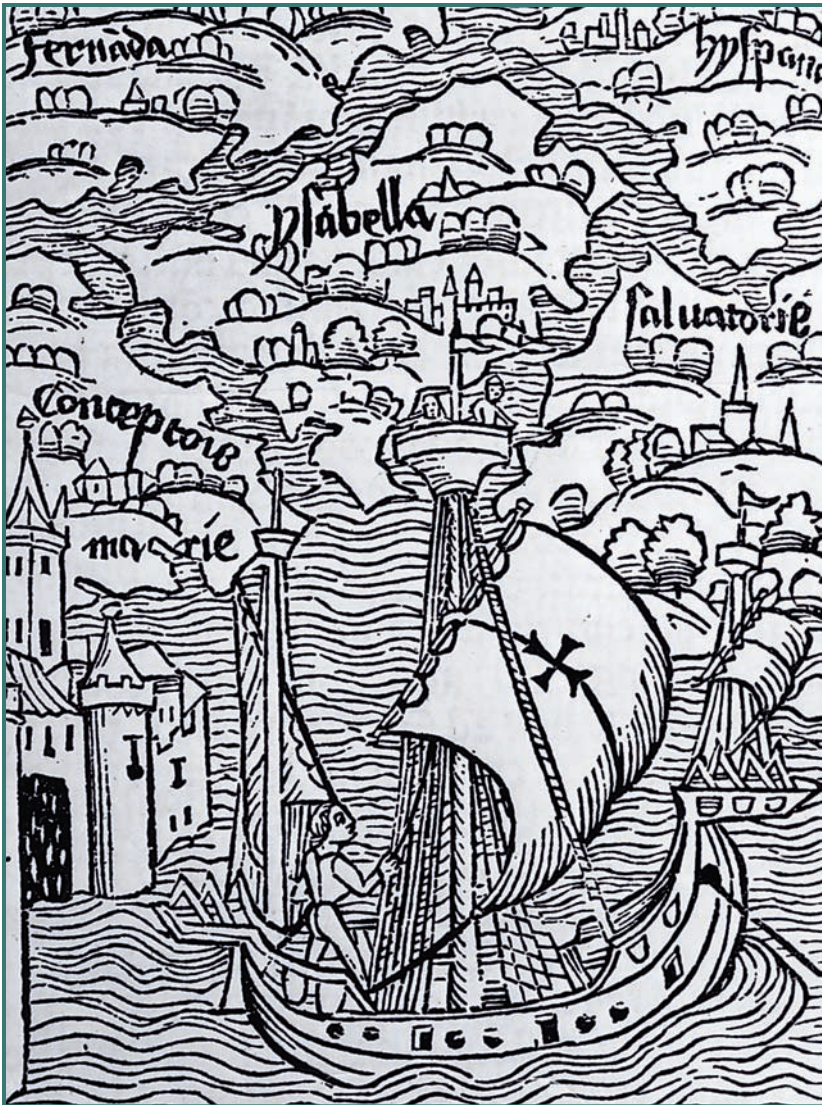 fernãda
hyspana
ysabella
saluatorie
Conceptoie
marie